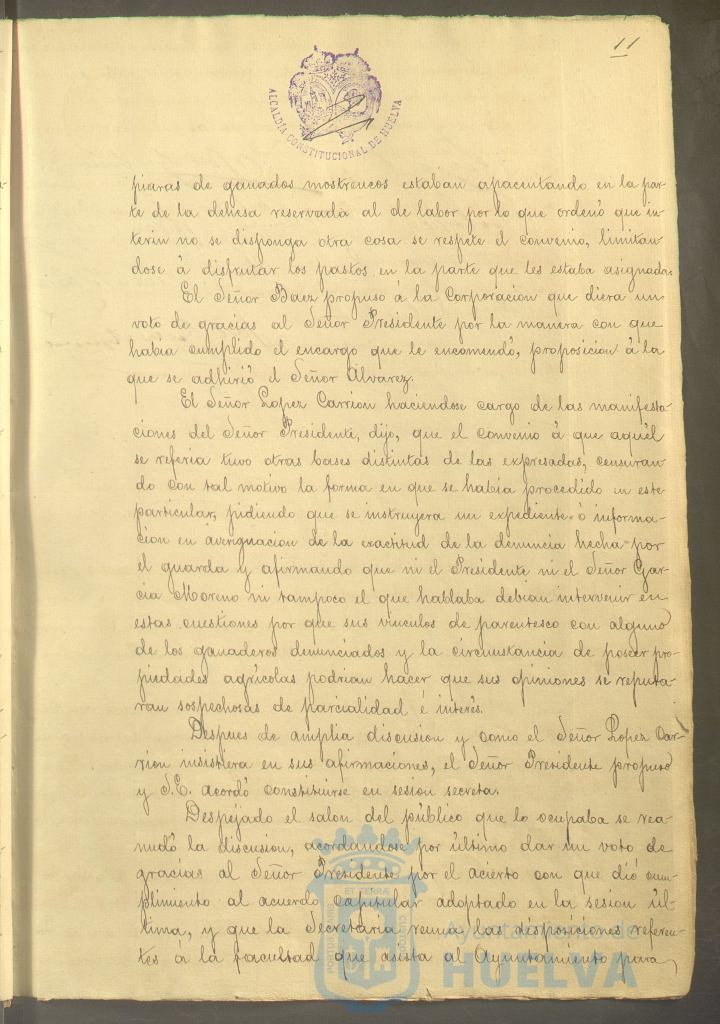 11
ALCALDÍA CONSTITUCIONAL DE HUELVA
piaras de ganados mostrencos estaban apacentando en la par-
te de la dehesa reservada al de labor por lo que ordenó que in-
terin no se disponga otra cosa se respete el convenio, limitan-
dose á disfrutar los pastos en la parte que les estaba asignada.
El Señor Baez propuso á la Corporacion que diera un
voto de gracias al Señor Presidente por la manera con que
habia cumplido el encargo que le encomendó, proposicion á la
que se adhirió el Señor Alvarez.
El Señor Lopez Carrion haciendose cargo de las manifesta-
ciones del Señor Presidente, dijo, que el convenio á que aquél
se referia tuvo otras bases distintas de las expresadas, censuran-
do con tal motivo la forma en que se habia procedido en este
particular, pidiendo que se instruyera un expediente ó informa-
cion en averiguacion de la exactitud de la denuncia hecha por
el guarda y afirmando que ni el Presidente ni el Señor Gar-
cia Moreno ni tampoco el que hablaba debian intervenir en
estas cuestiones por que sus vinculos de parentesco con alguno
de los ganaderos denunciados y la circunstancia de poseer pro-
piedades agrícolas podrian hacer que sus opiniones se reputa-
ran sospechosas de parcialidad é interés.
Despues de amplia discusion y como el Señor Lopez Car-
rion insistiera en sus afirmaciones, el Señor Presidente propuso
y S.E. acordó constituirse en sesion secreta.
Despejado el salon del público que lo ocupaba se rea-
nudó la discusion, acordandose por último dar un voto de
gracias al Señor Presidente por el acierto con que dió cum-
plimiento al acuerdo capitular adoptado en la sesion úl-
tima, y que la Secretaría reuna las disposiciones referen-
tes á la facultad que asista al Ayuntamiento para
Ayuntamiento de
HUELVA
PORTUS MARIS ET TERRÆ CUSTODIA